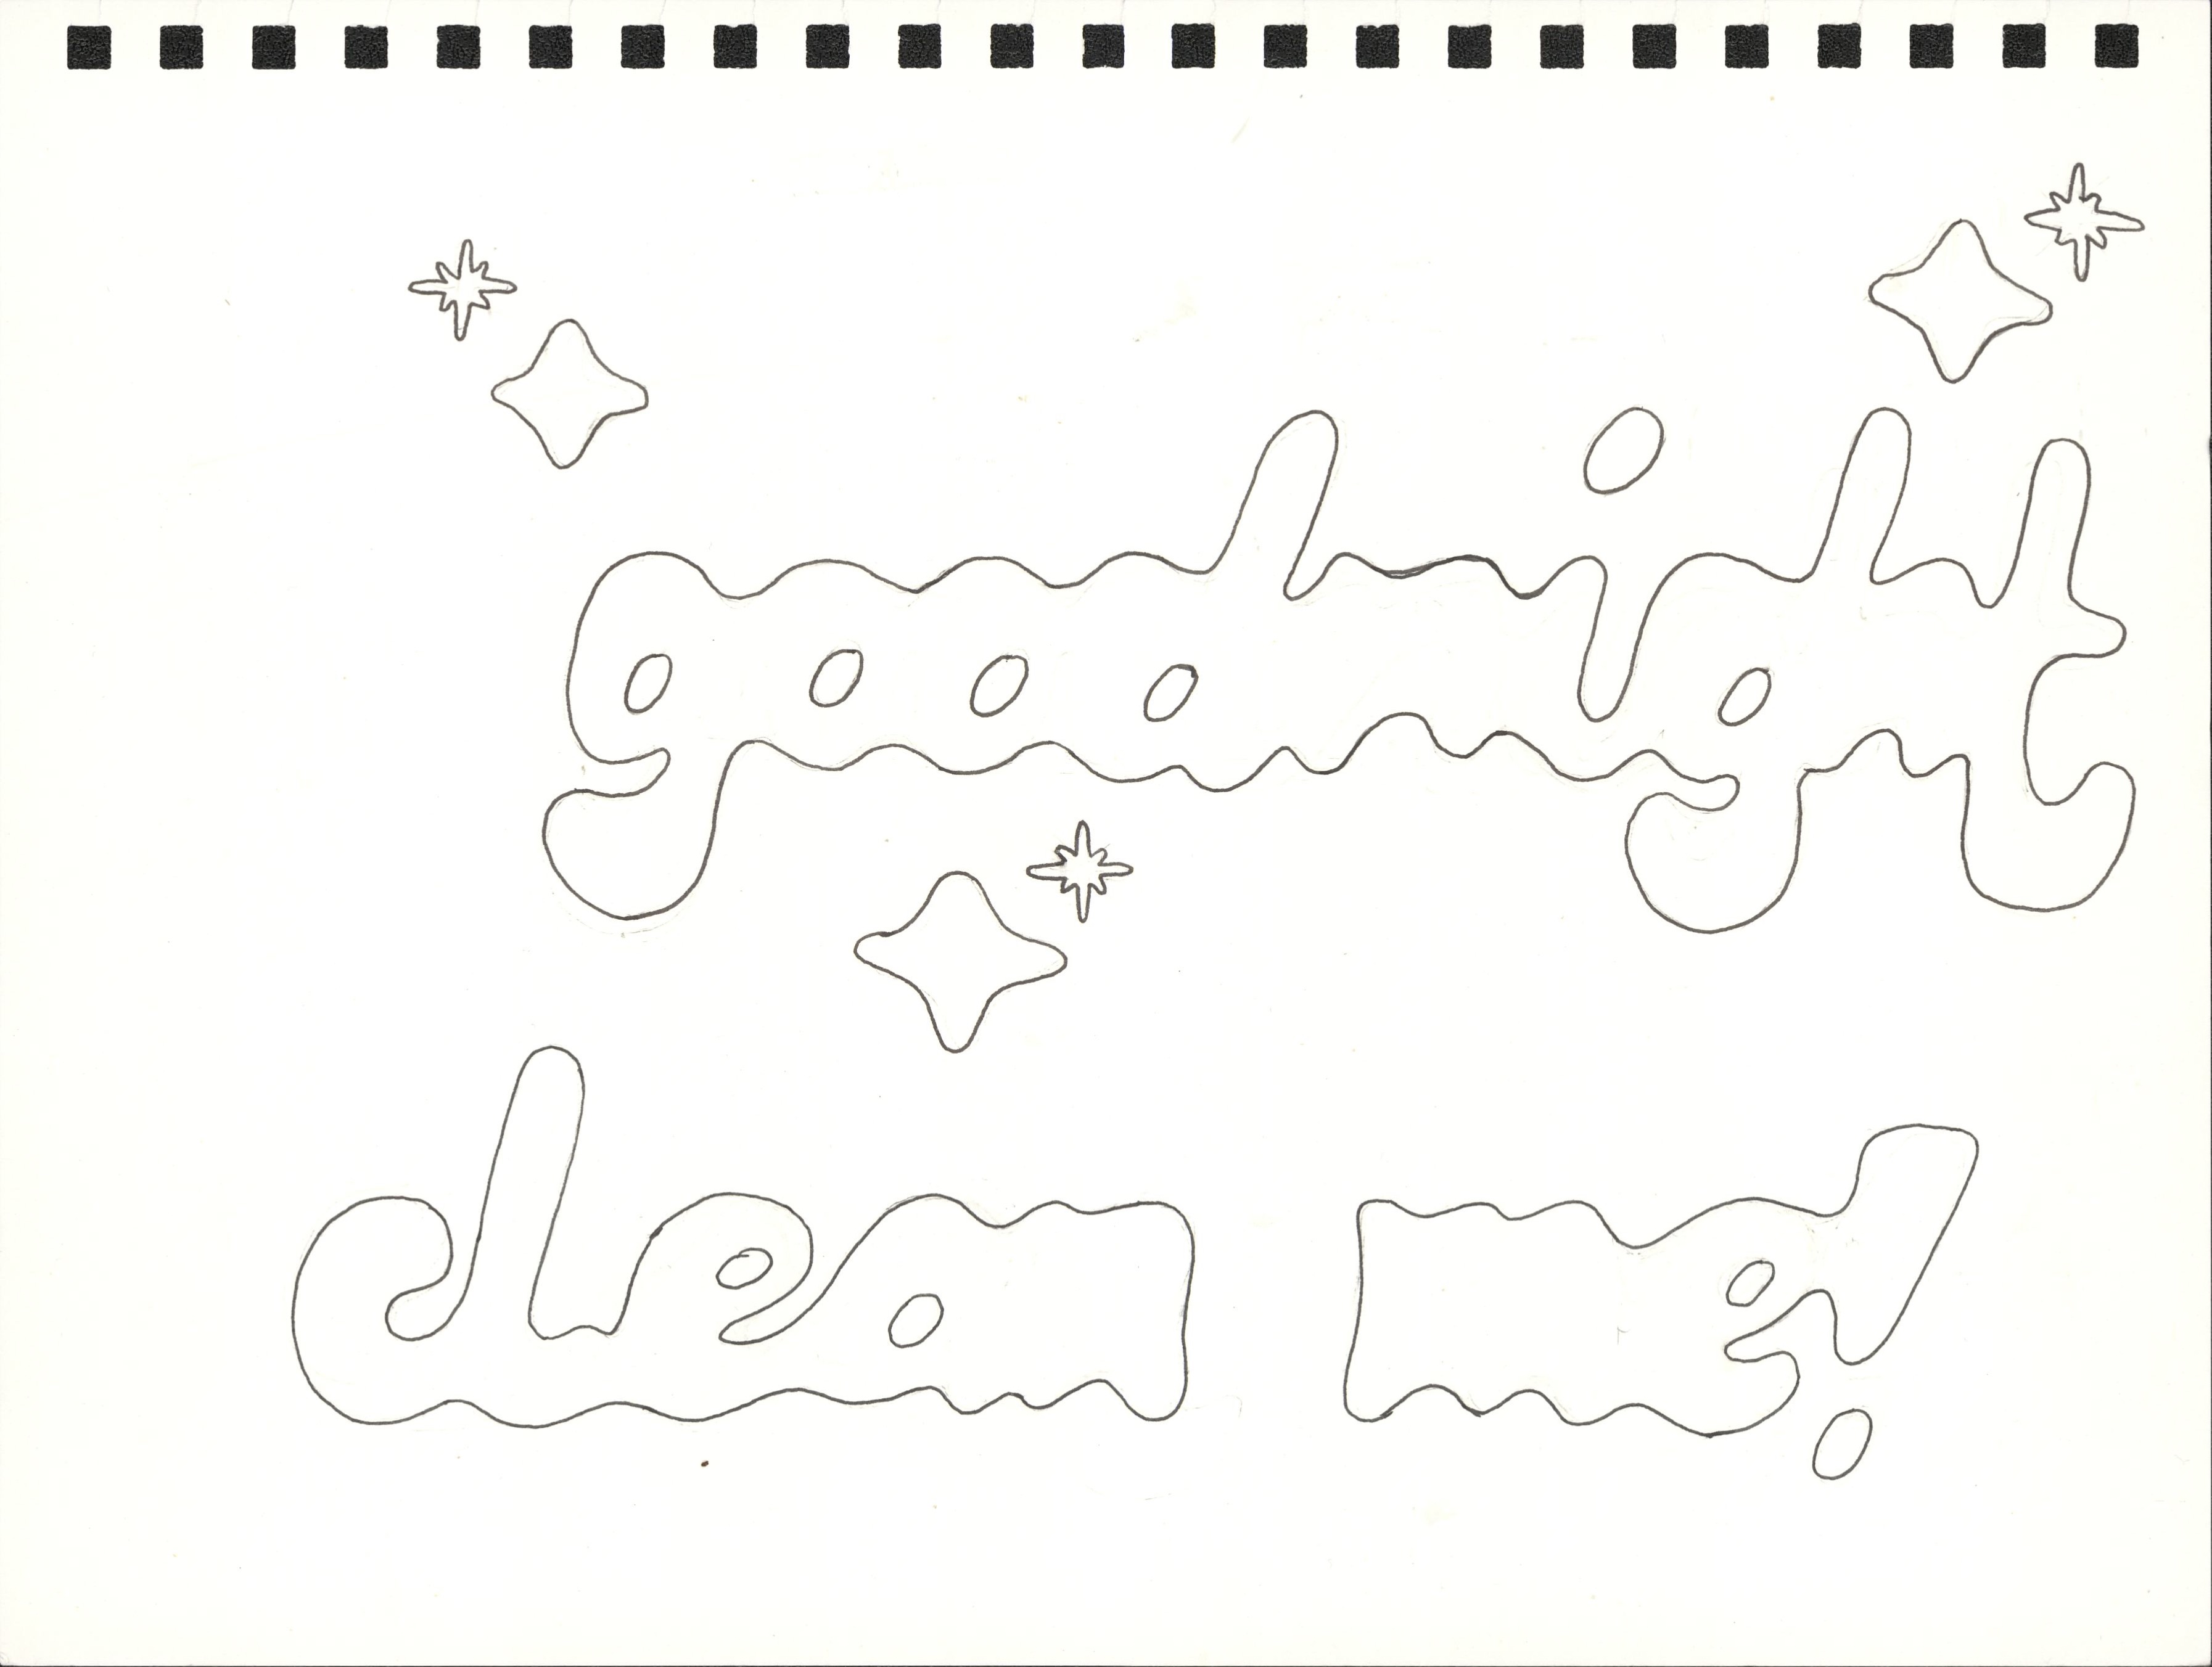 goodnight
clean me!